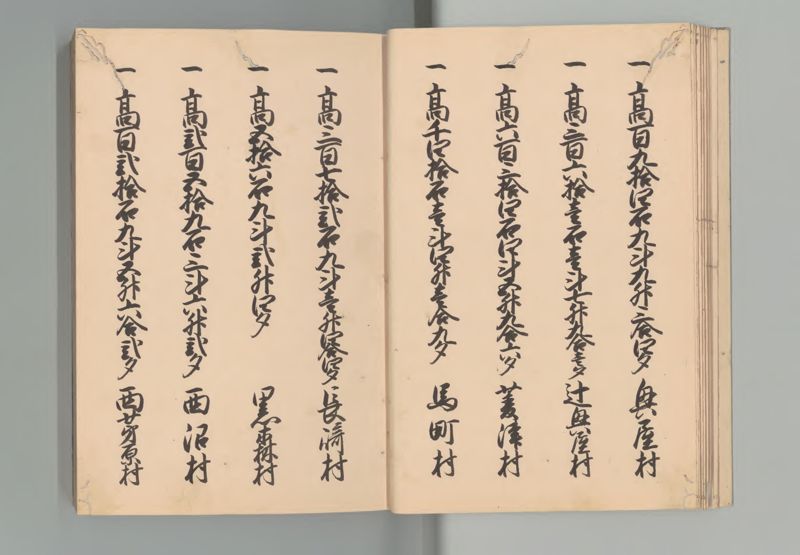 一 高百九拾四石九斗九升三合四夕 興屋村
一 高三百六拾壱石壱斗七升九合壱夕 辻興屋村
一 高六百三拾四石四斗五升九合六夕 菱津村
一 高千四拾石壱斗四升壱合九夕 馬町村
一 高三百七拾弐石九斗壱升四合四夕 長崎村
一 高五拾六石九斗弐升四夕 黒森村
一 高弐百五拾九石三斗六升弐夕 西沼村
一 高百弐拾石九斗五升六合弐夕 西茅原村